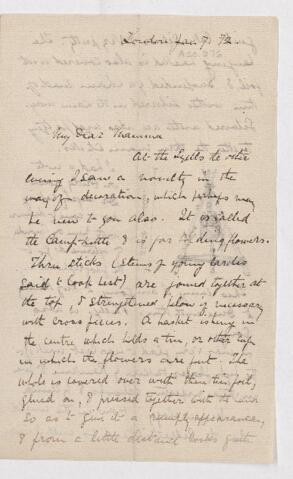 London Jan 7. /72
My Dear Mamma
At the Lyells the other
evening I saw a novelty in the
way of a decoration, which perhaps may
be new to you also. It is called
the Camp-kettle & is for holding flowers.
Three sticks (stems of young larches
said to look best) are joined together at
the top, & strengthened below if necessary
with cross pieces. A basket is hung in
the centre which holds a tin, or other cup
in which the flowers are put. The
whole is covered over with thin tin foil,
glued on, & pressed together with the hand
so as to give it a rumply appearance,
& from a little distance looks quite